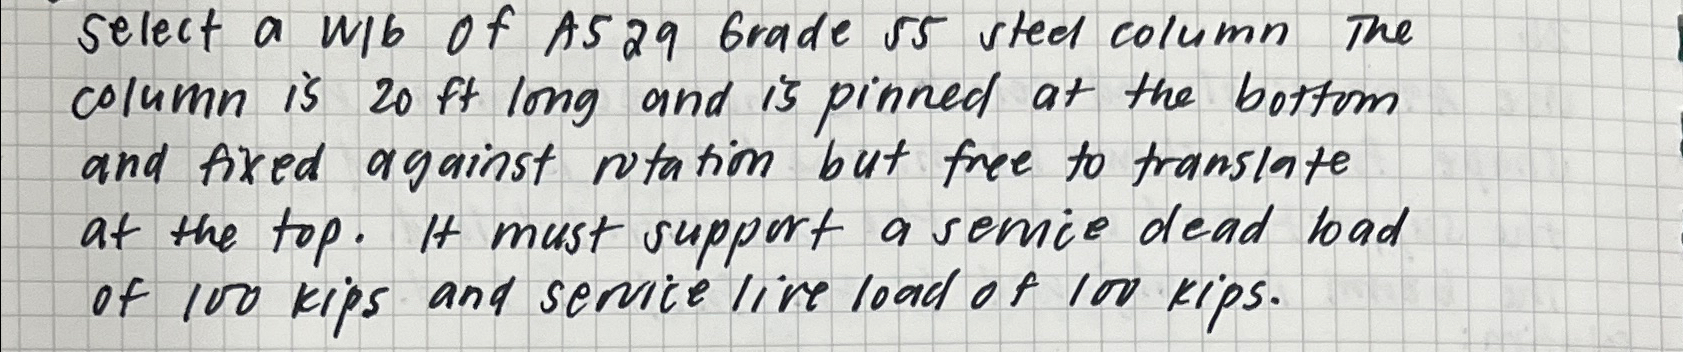 select a W16 of A529 Grade 55 steel column The
column is 20 ft long and is pinned at the bottom
and fixed against rotation but free to translate
at the top. It must support a service dead load
of 100 kips and service live load of 100 kips.